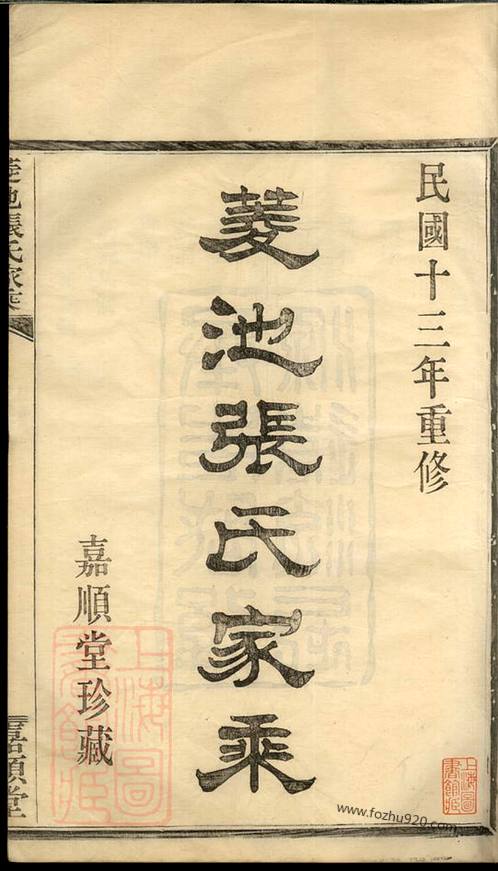 民國十三年重修
菱池張氏家乘
嘉順堂珍藏
菱池張氏家乘
嘉順堂
上海圖書館藏
www.fozhu920.com